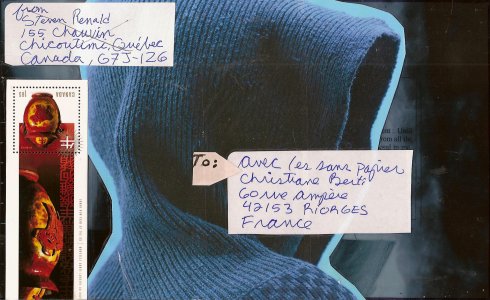 from
Steven Renald
155 Chauvin
Chicoutimi, Québec
Canada, G7J-1Z6
CANADA
To:
avec les sans papier
Christiane Bert
60 rue ampère
42153 RIORGES
France